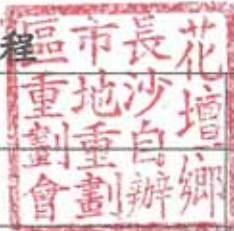 程
花壇鄉
長沙自辦
市地重劃
區重劃會